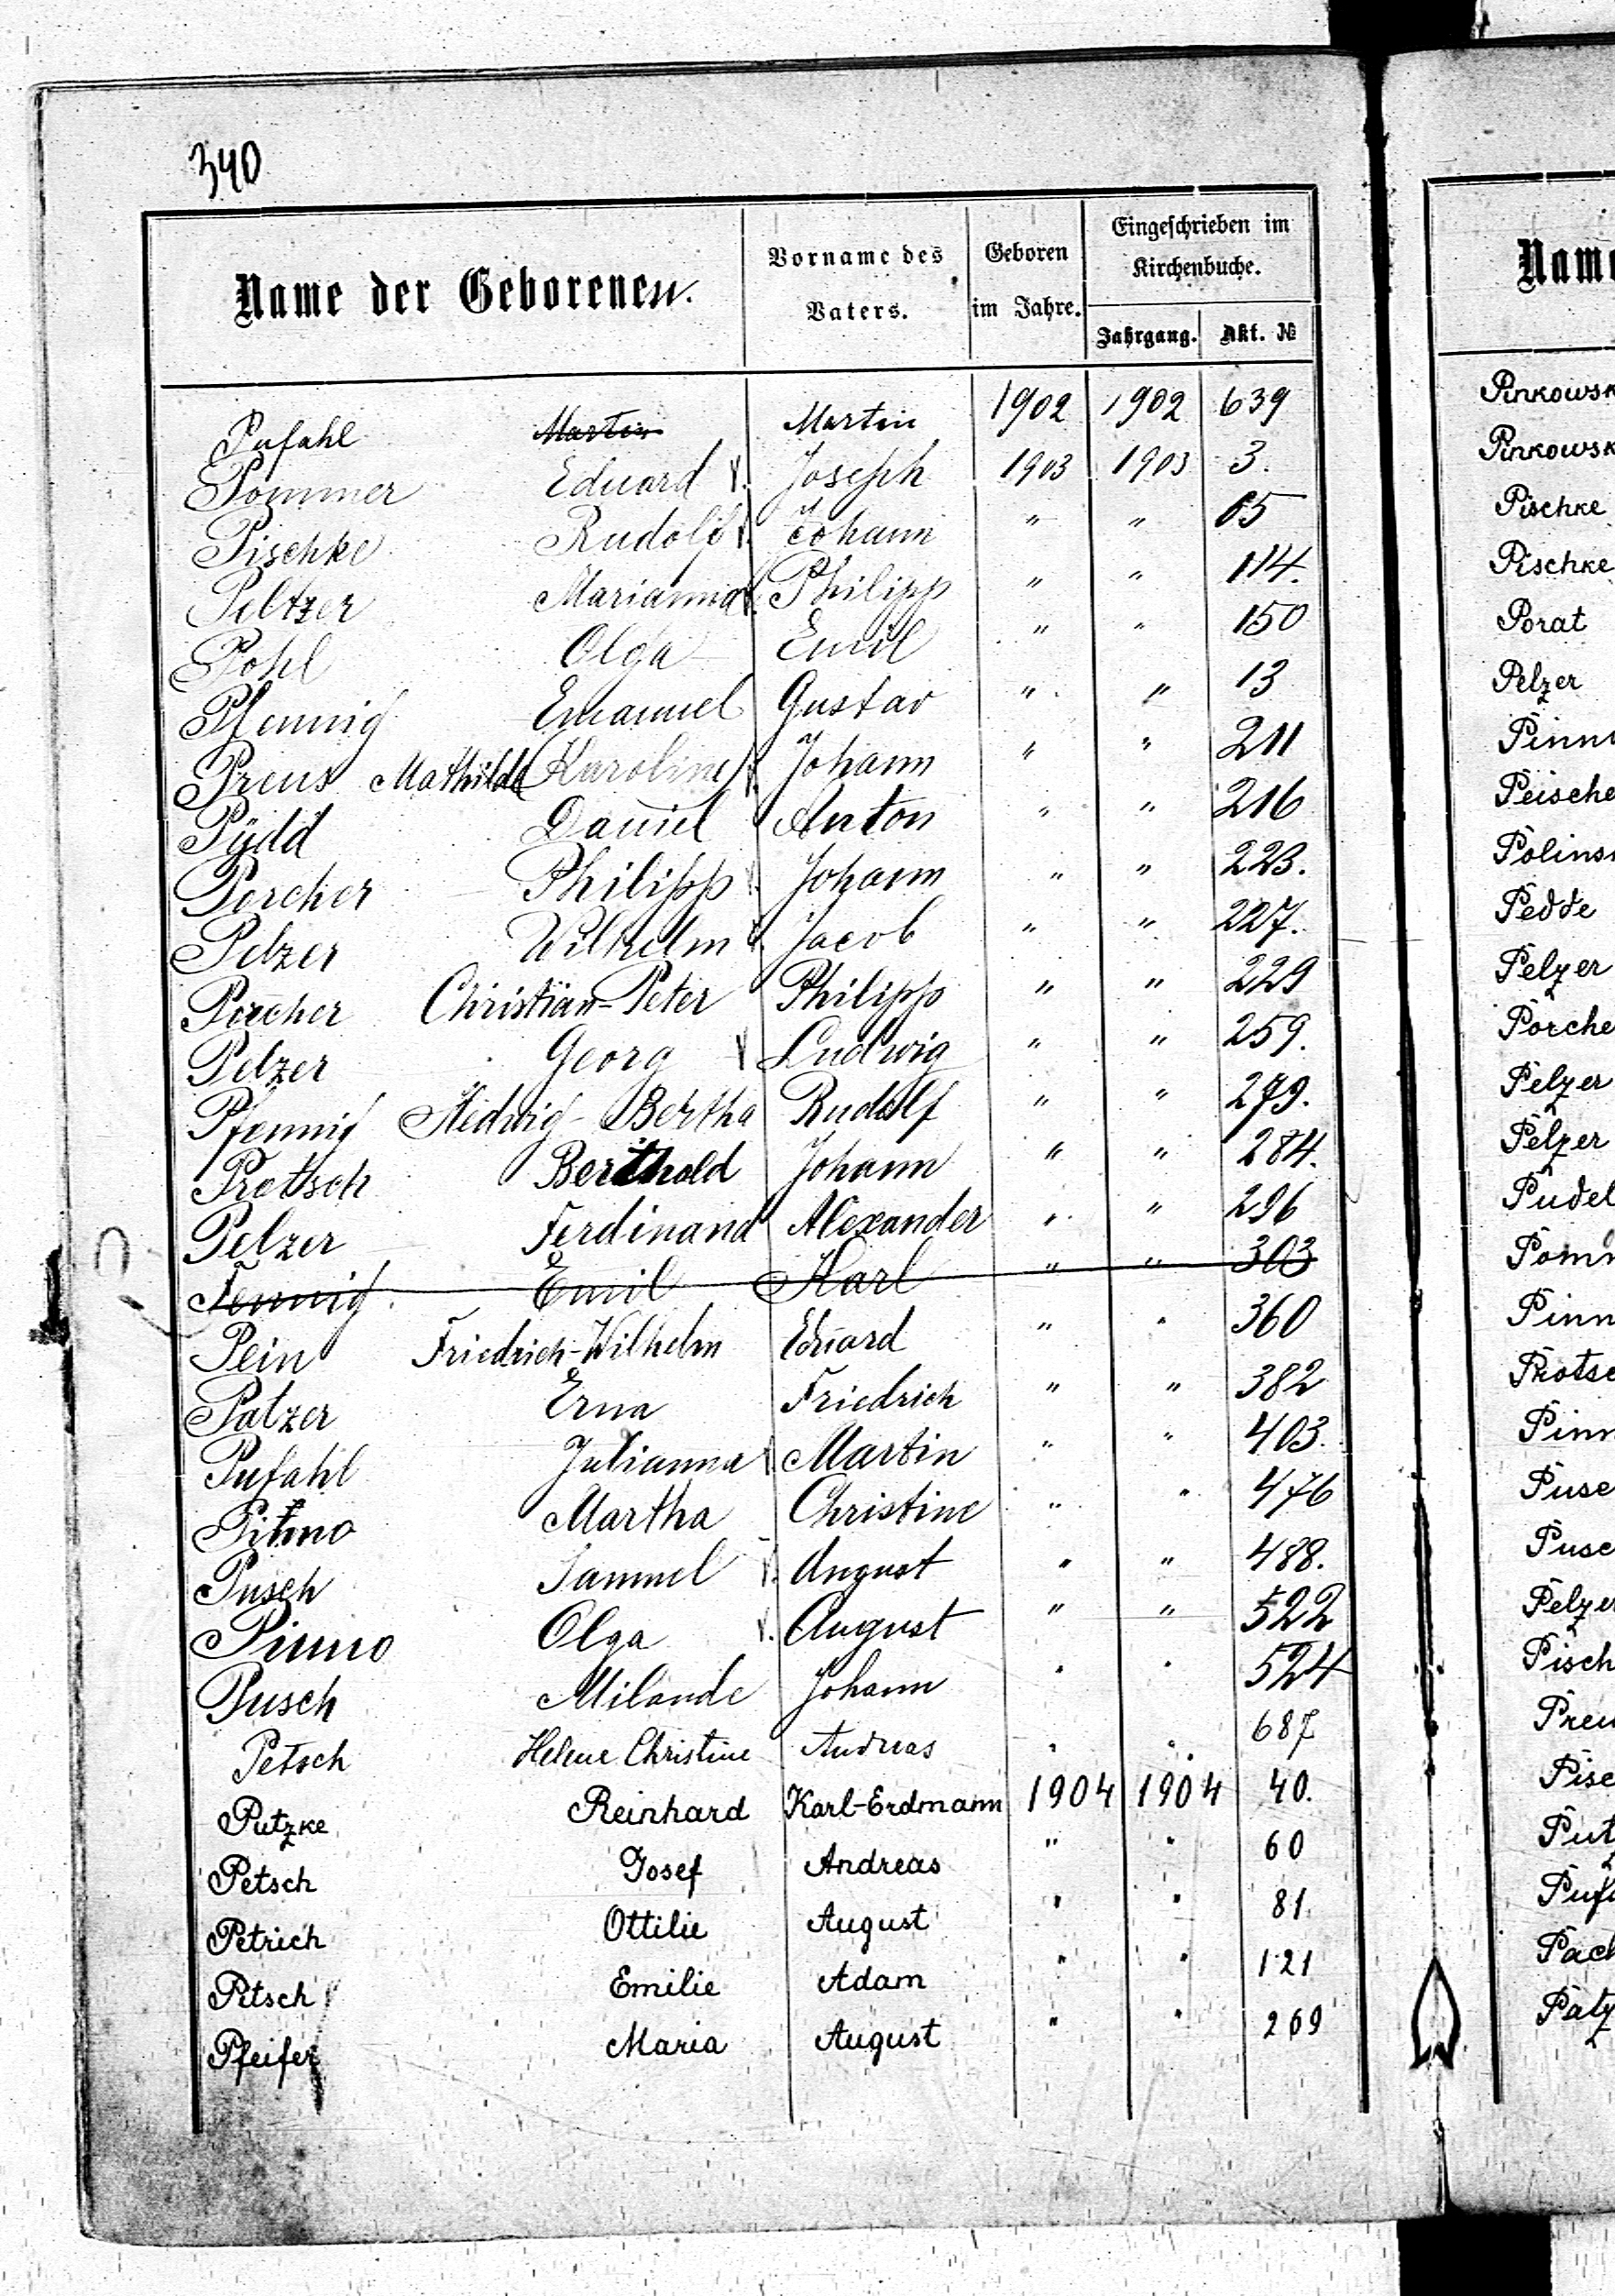 340
Name der Geborenen. Vorname des Vaters. Geboren im Jahre. Eingeschrieben im Kirchenbuche. Jahrgang. Akt. №
Pufahl Martin Martin 1902 1902 639
Pommer Eduard Joseph 1903 1903 3.
Pischke Rudolf Johann " " 65
Peltzer Marianna Philipp " " 114.
Pohl Olga Emil " " 150
Pfennig Emanuel Gustav " " 13
Preus Mathilda Karoline Johann " " 211
Püdd Daniel Anton " " 216
Porcher Philipp Johann " " 223.
Pelzer Wilhelm Jacob " " 227.
Porcher Christian-Peter Philipp " " 229
Pelzer Georg Ludwig " " 259.
Pfennig Hedwig-Bertha Rudolf " " 279.
Protsch Berthold Johann " " 284.
Pelzer Ferdinand Alexander " " 296
Fennig Emil Karl " " 303
Pein Friedrich-Wilhelm Eduard " " 360
Patzer Erna Friedrich " " 382
Pufahl Julianna Martin " " 403.
Pinno Martha Christine " " 476
Pusch Samuel August " " 488.
Pinno Olga August " " 522
Pusch Milande Johann " " 524
Petsch Helene Christine Andreas " " 687
Putzke Reinhard Karl-Erdmann 1904 1904 40.
Petsch Josef Andreas " " 60
Petrich Ottilie August " " 81.
Petsch Emilie Adam " " 121
Pfeifer Maria August " " 269
Name
Pinkowsk
Pinkowsk
Pischke
Pischke
Porat
Pelzer
Pinn
Peische
Polins
Pedde
Pelzer
Porche
Pelzer
Pelzer
Pudel
Pom
Pinn
Protsc
Pinn
Puse
Pusc
Pelzer
Pisch
Preu
Pisc
Put
Puf
Pach
Patz